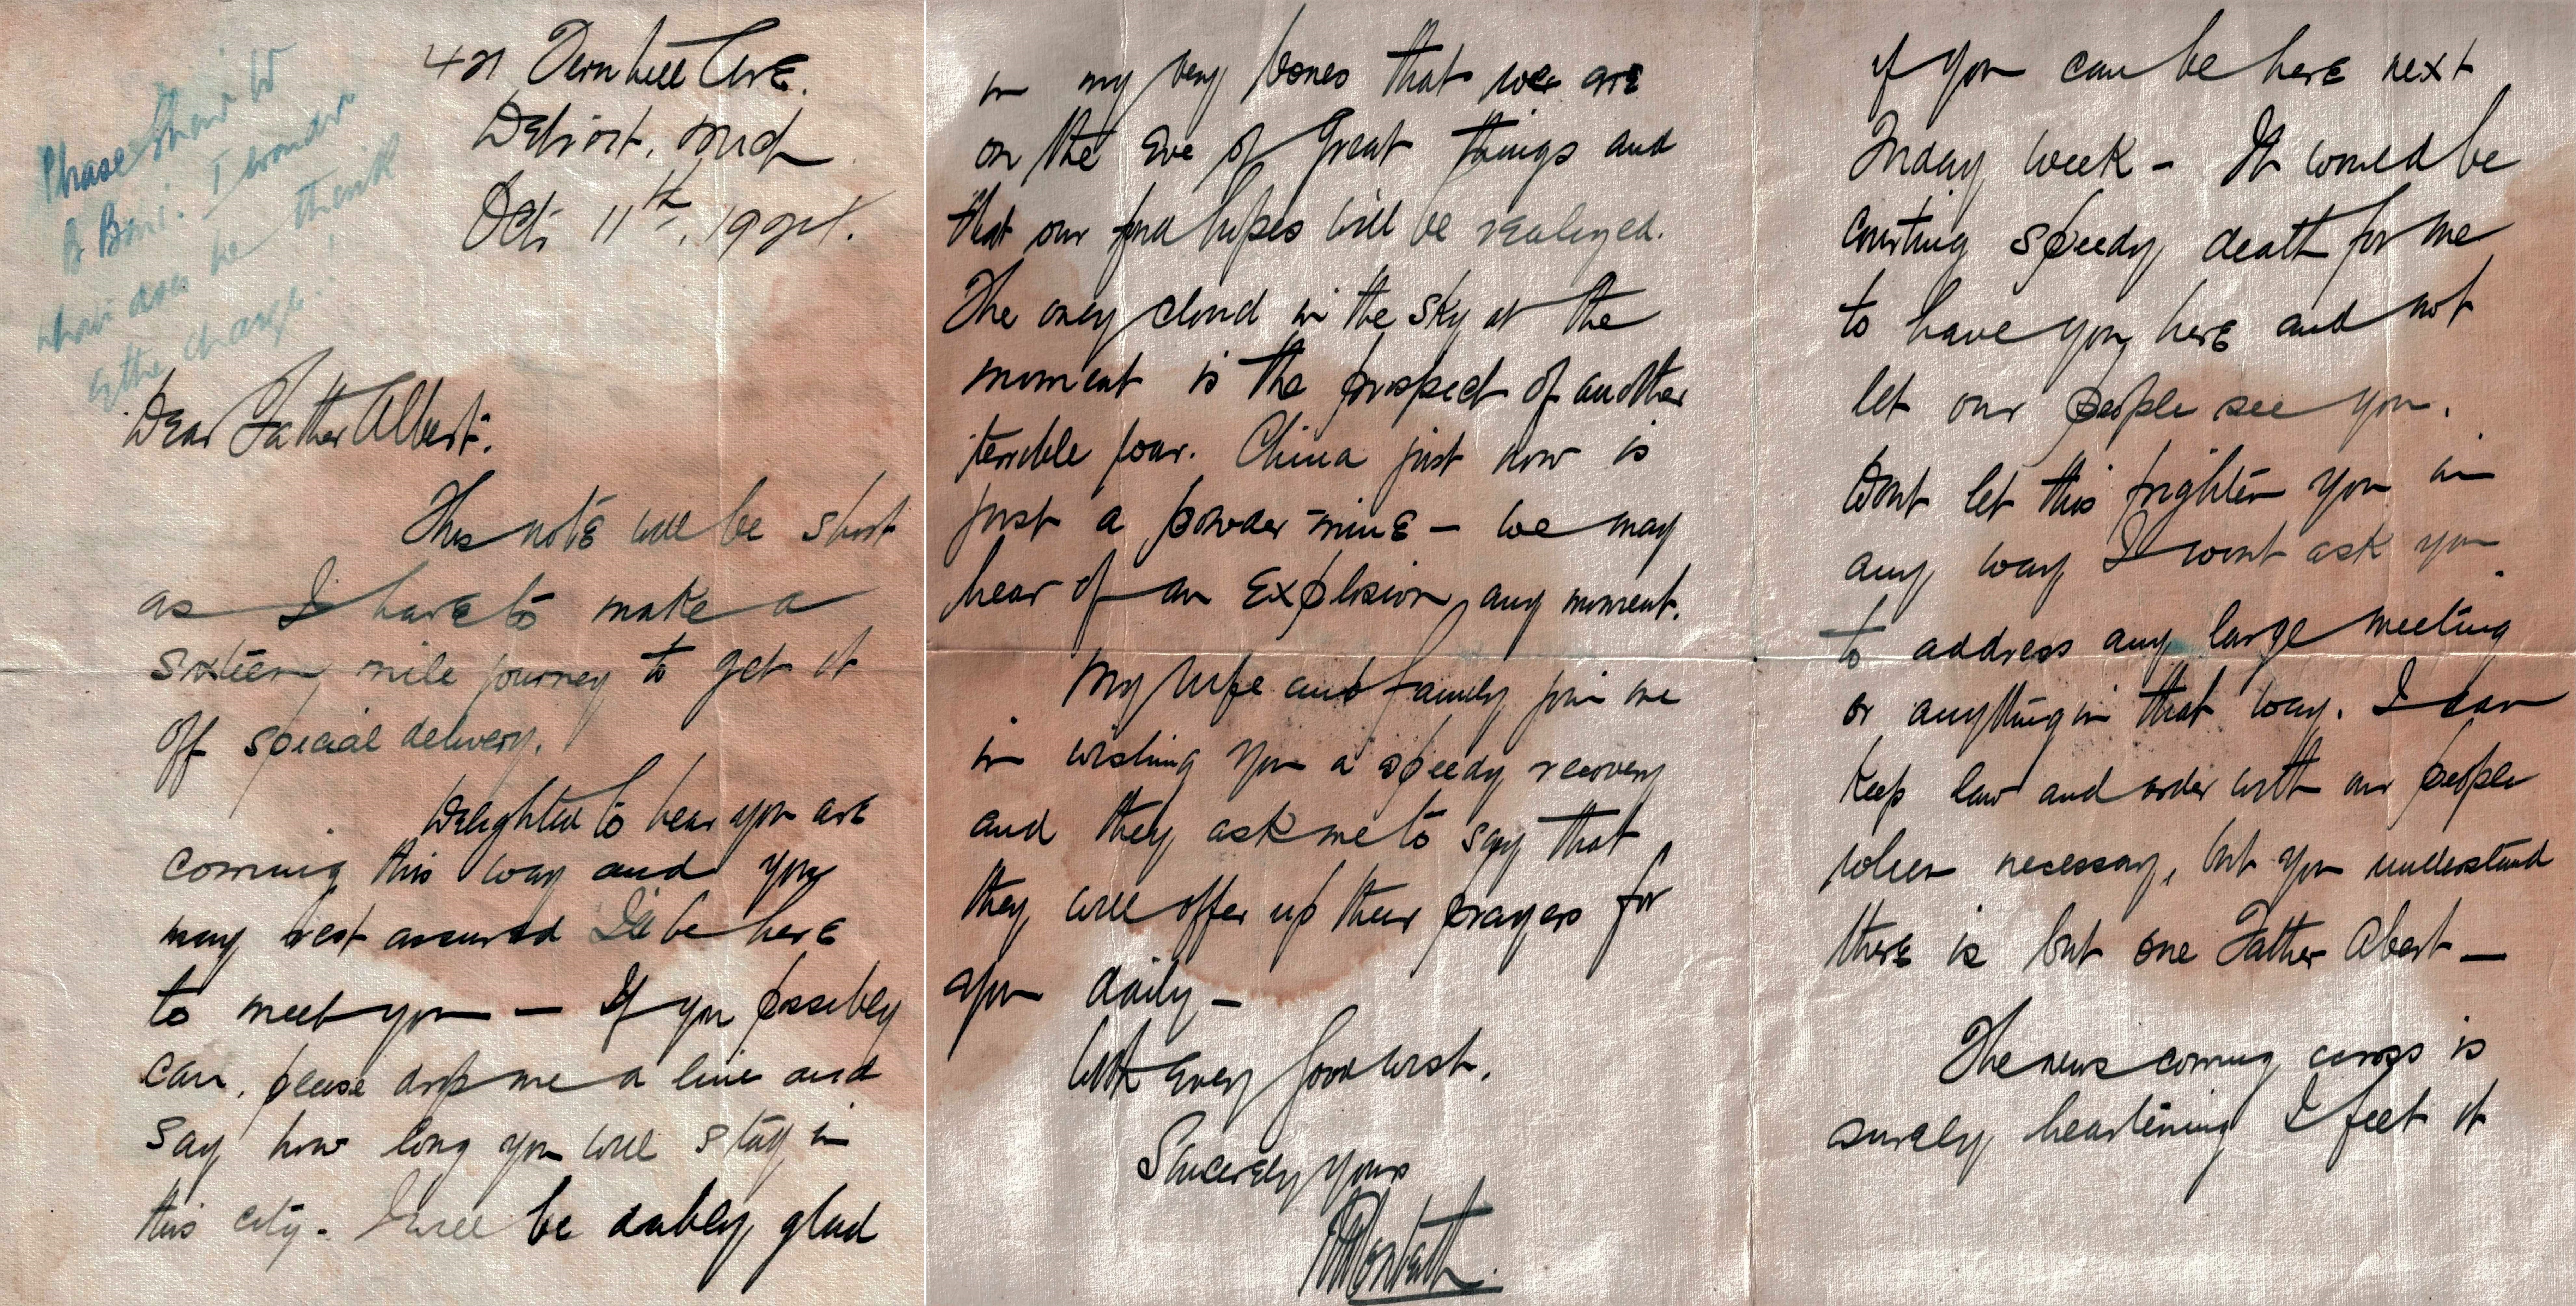 Please Show to
Boni. I wonder
what does he think
of the change!
Ave.
Detroit, Mich
Oct. 11th, 1924.
Dear Father Albert:
This note will be short
as I have to make a
sixteen mile journey to get it
off special delivery.
Delighted to hear you are
coming this way and you
may rest assured I'll be here
to meet you — If you possibly
can, please drop me a line and
say how long you will stay in
this city. I will be doubly glad
if you can be here next
Friday week – It would be
courting speedy death for me
to have you here and not
let our people see you.
Dont let this frighten you in
any way I wont ask you
to address any large meeting
or anything in that way. I can
keep law and order with our people
when necessary, but you understand
there is but one Father Abert —
The news coming across is
surely heartening I feel it
in my very bones that we are
on the eve of great things and
that our fond hopes will be realized.
The only cloud in the sky at the
moment is the prospect of another
terrible war. China just now is
just a powder mine – we may
hear of an explosion any moment.
My wife and family join me
in wishing you a speedy recovery
and they ask me to say that
they will offer up their prayers for
you daily –
With every good wish.
Sincerely yours
RMonteith.